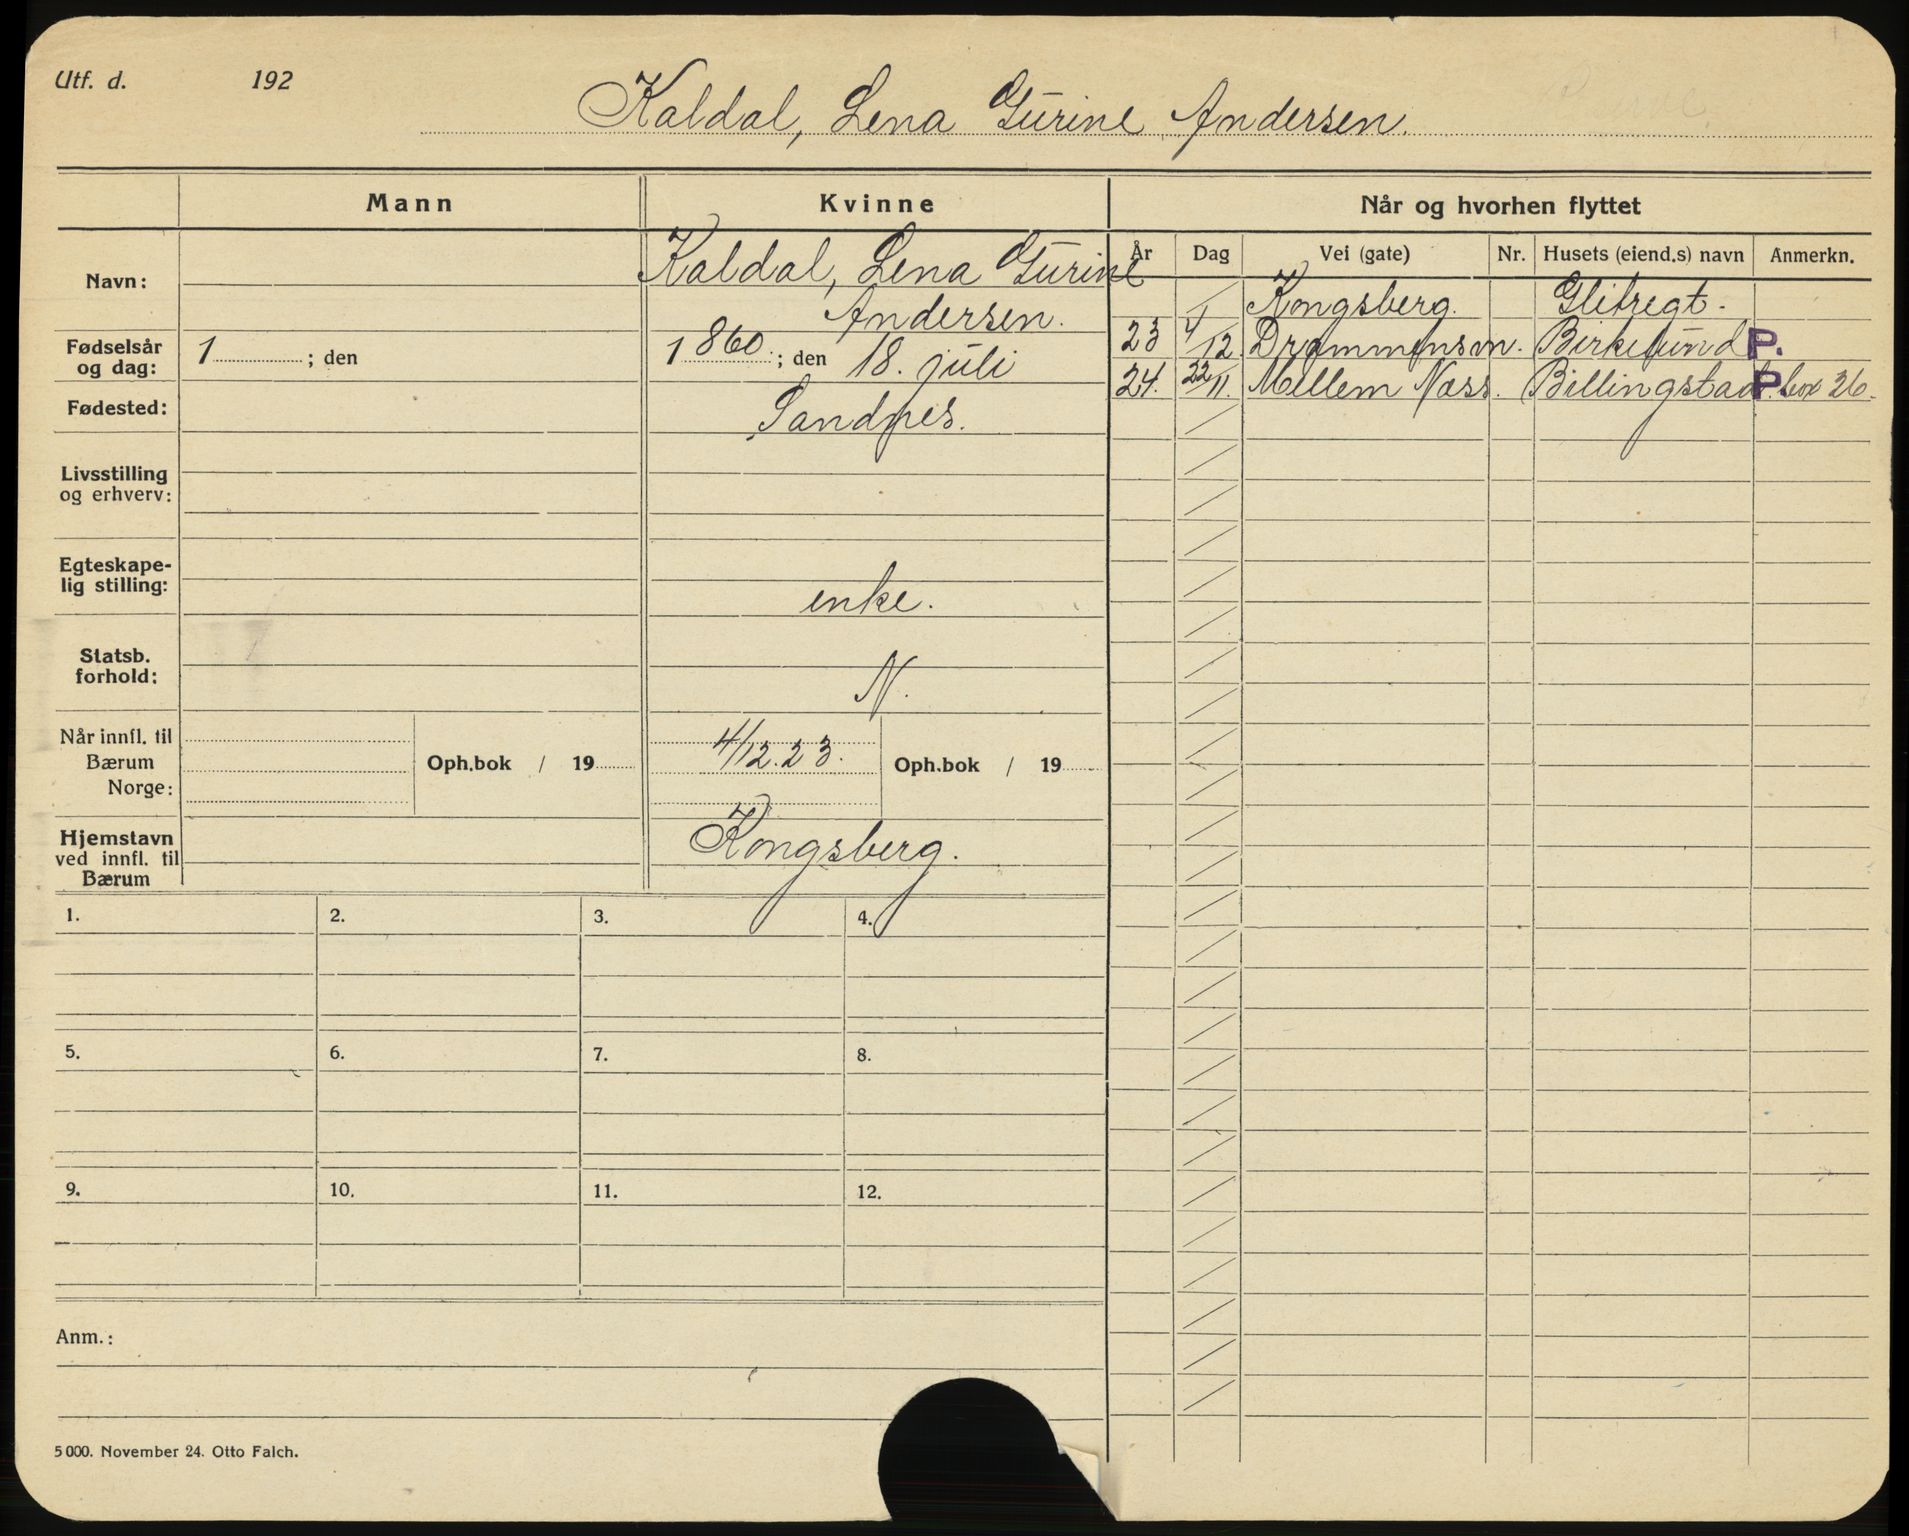 Utf. d. 192
Kaldal, Lena Gurine Andersen.
Mann Kvinne Når og hvorhen flyttet
År Dag Vei (gate) Nr. Husets (eiend.s) navn Anmerkn.
Navn: Kaldal, Lena Gurine
Andersen.
Fødselsår
og dag: 1 ; den 1 860 ; den 18. juli
Fødested: Sandnes.
Livsstilling
og erhverv:
Egteskape-
lig stilling: enke.
Statsb.
forhold: N.
Når innfl. til
Bærum Oph.bok / 19 4/12.23. Oph.bok / 19
Norge:
Hjemstavn
ved innfl. til
Bærum Kongsberg.
Kongsberg.
23 4/12 Drammensvn. Birkelund P.
24. 22/11. Mellem Næss. Billingstad P. box 36.
1. 2. 3. 4.
5. 6. 7. 8.
9. 10. 11. 12.
Anm.:
5000. November 24. Otto Falch.